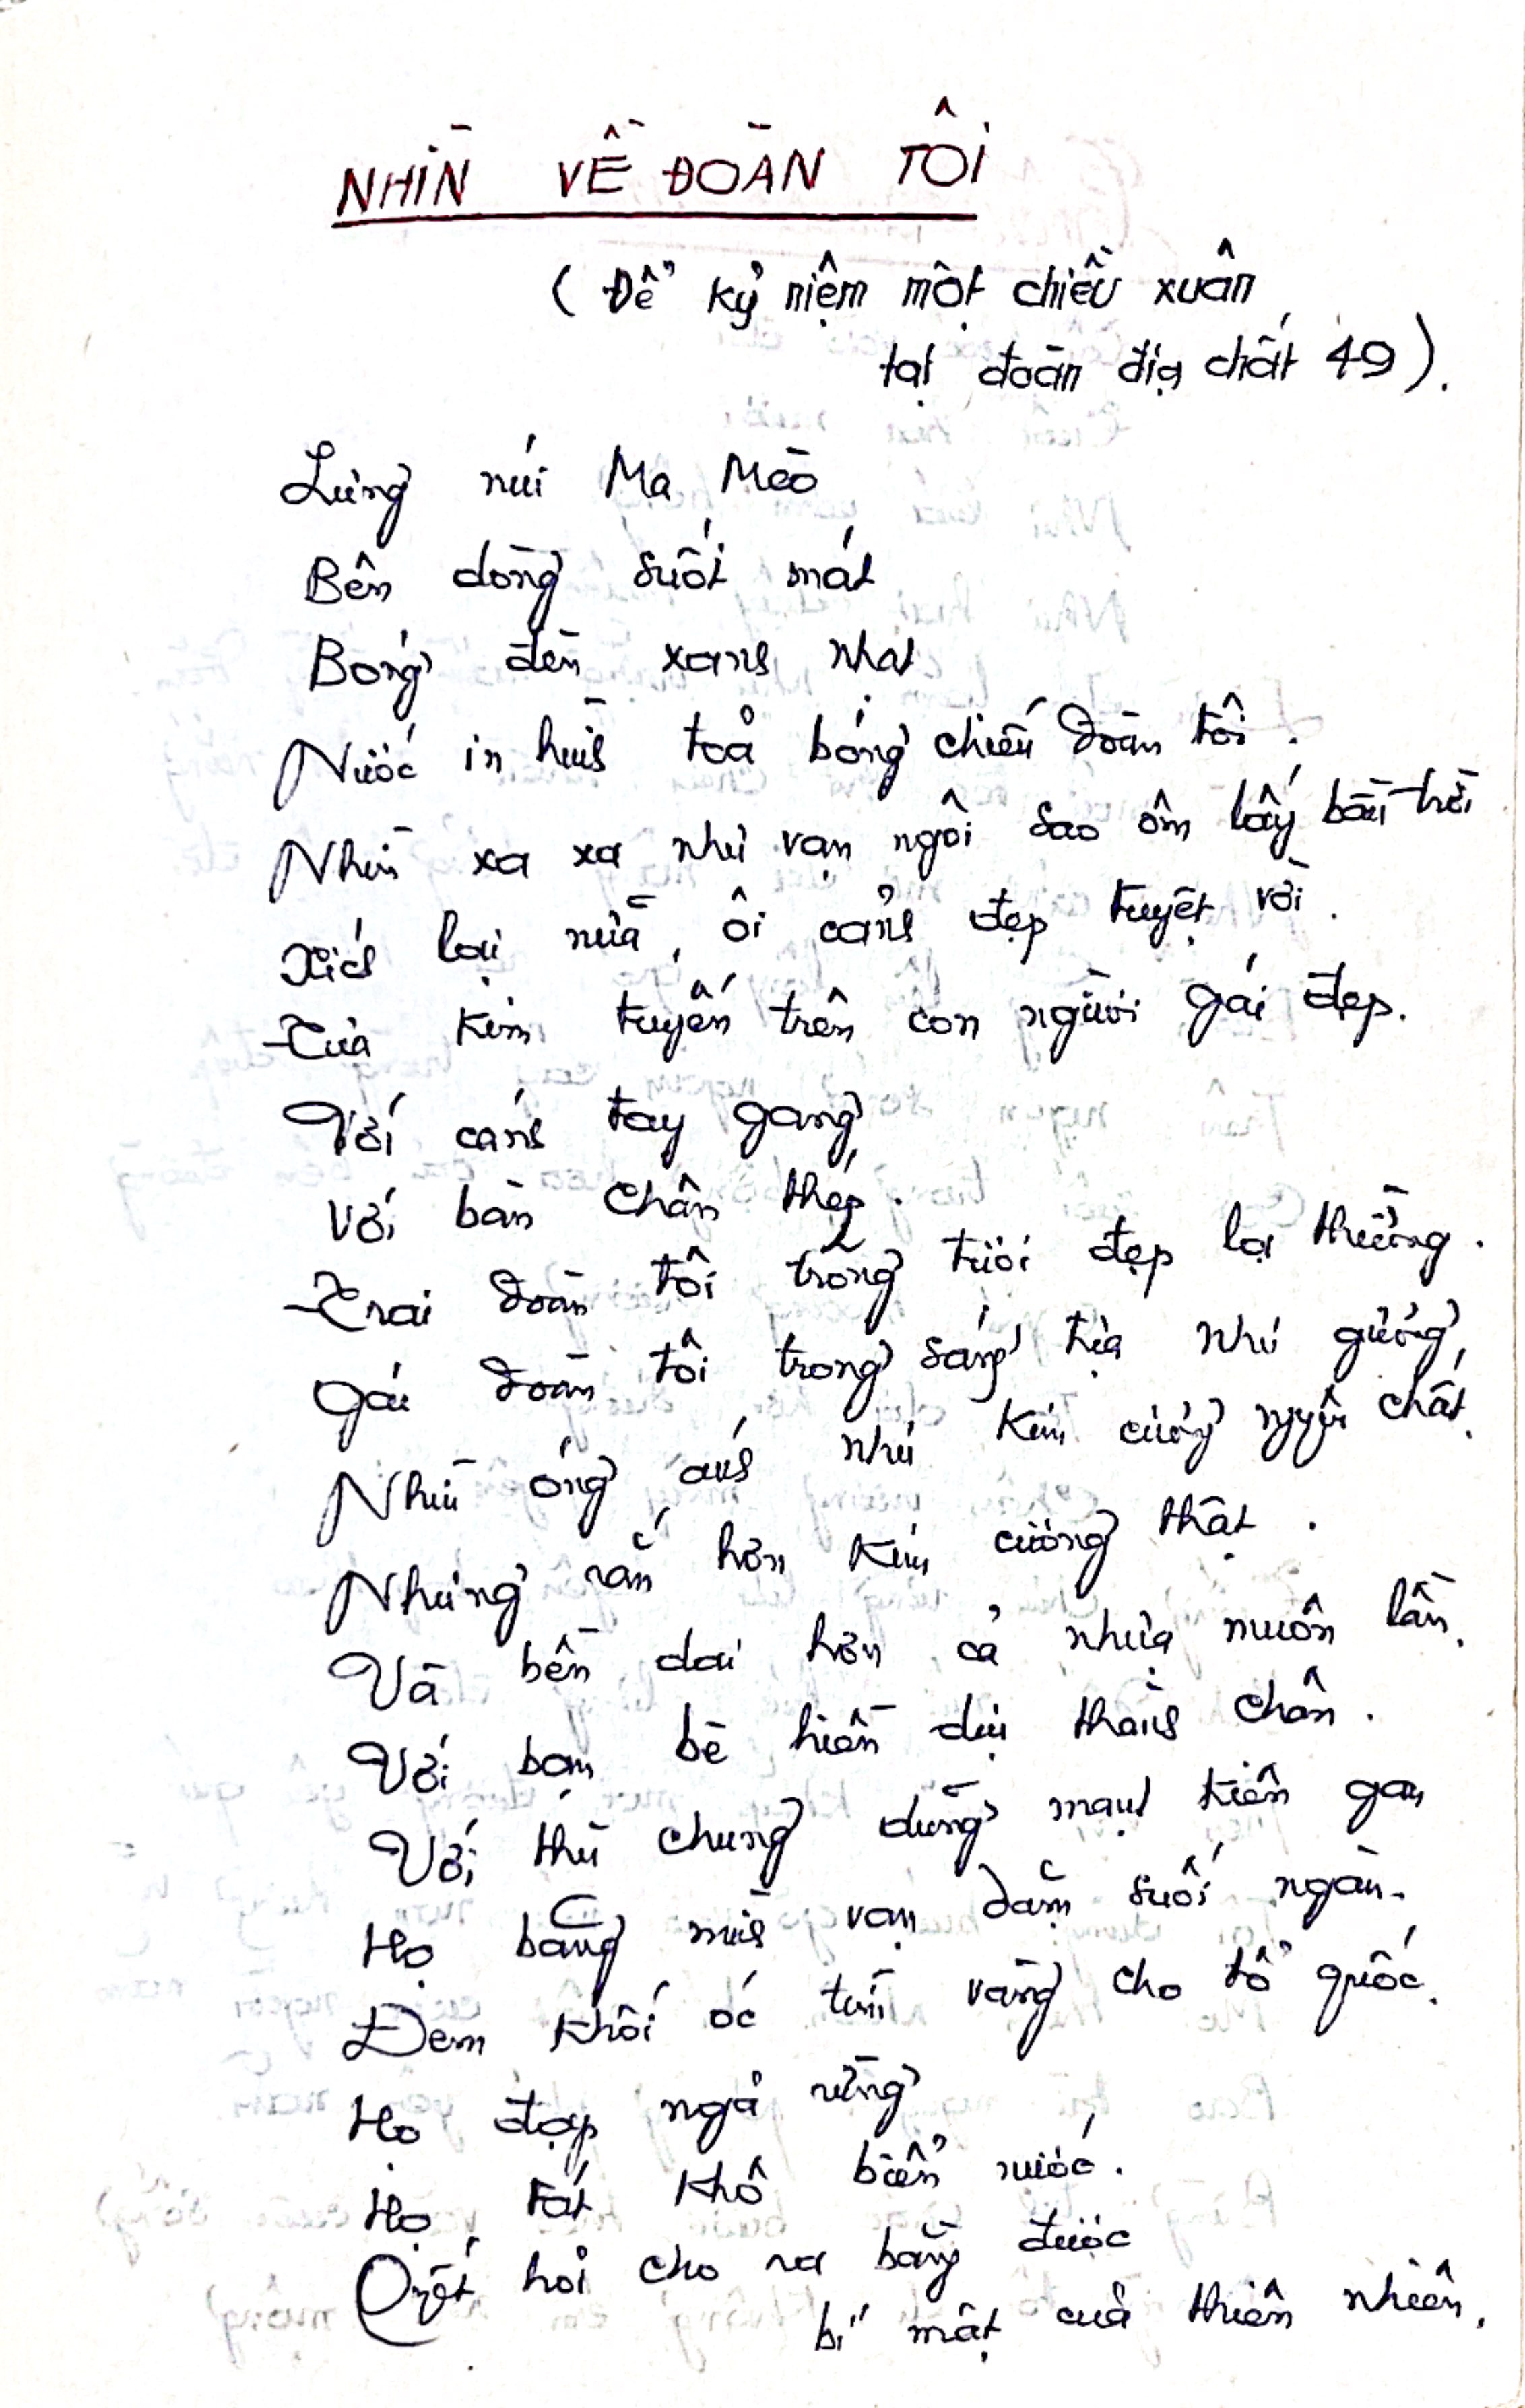 NHÌN VỀ ĐOÀN TÔI
(Để kỷ niệm một chiều xuân
tại đoàn địa chất 49).
Lưng núi Mạ Mèo
Bên dòng suối mát
Bóng đèn xanh nhạt
Nước in hình toả bóng chiếu đoàn tôi.
Nhìn xa xa như vạn ngôi sao ôm lấy bầu trời
Xích lại nữa, ôi cảnh đẹp tuyệt vời.
Tủa kim tuyến trên con người gái đẹp.
Với cánh tay gang
Với bàn chân thép.
Trai đoàn tôi trông tươi đẹp lạ thường.
Gái đoàn tôi trong sáng tựa như gương,
Như óng ánh như kim cương nguyên chất.
Nhưng rắn hơn kim cương thật.
Và bền dai hơn cả nhựa muôn lần.
Với bạn bè hiền dịu thành chân.
Với thù chung dũng mạnh kiên gan
Họ băng mình vạn dặm suối ngàn.
Đem khối óc tìm vàng cho tổ quốc.
Họ đạp ngả rừng
Họ tát khô biển nước.
Quyết hỏi cho ra bằng được
bí mật của thiên nhiên.